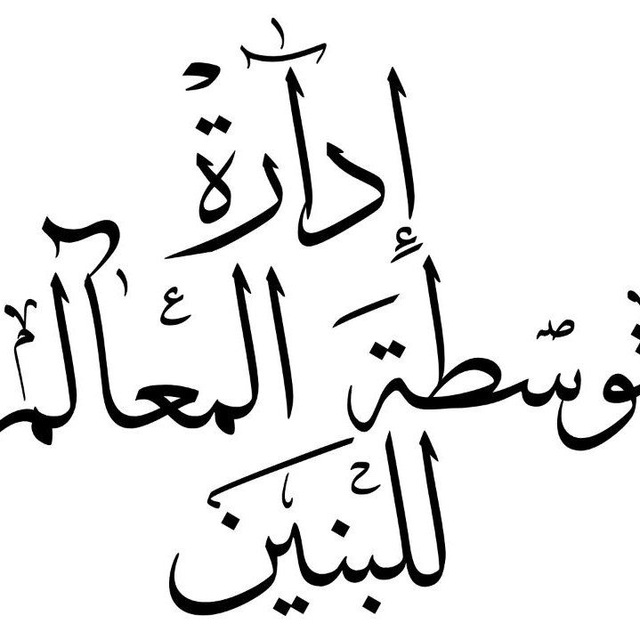 إدارة
توسطة المعالم
للبنين